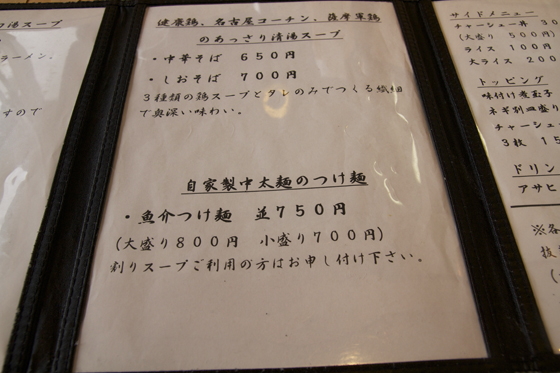 湯スープ
ラーメン、
すので
健康鶏、名古屋コーチン、薩摩軍鶏
のあっさり清湯スープ
・中華そば ６５０円
・しおそば ７００円
３種類の鶏スープとタレのみでつくる繊細
で奥深い味わい。
自家製中太麺のつけ麺
・魚介つけ麺 並７５０円
(大盛り８００円 小盛り７００円)
割りスープご利用の方はお申し付け下さい。
サイドメニュー
チャーシュー丼 ３０
(大盛り ５００円)
ライス １００円
大ライス ２００
トッピング
味付け煮玉子
ネギ別皿盛り
チャーシュー
３枚 １５
ドリン
アサヒ
※各
抜